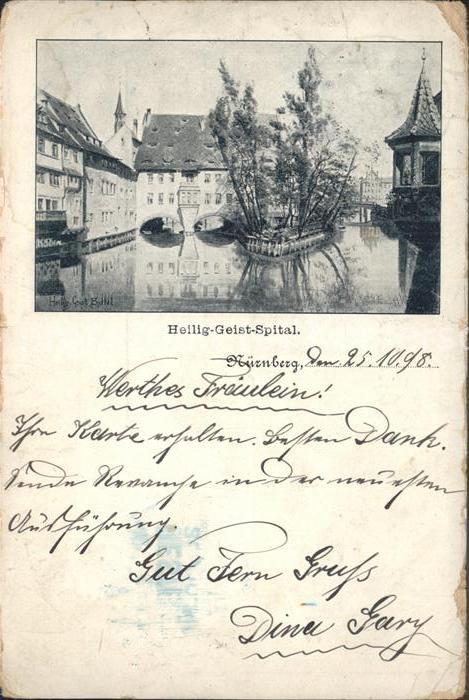 Heilig. Geist Spital
Heilig-Geist-Spital.
Nürnberg, den 25.10.98.
Werthes Fräulein!
Ihre Karte erhalten. besten Dank.
Sende Revanche in der neuesten
Ausführung.
Gut Fern Gruss
Dina Gary